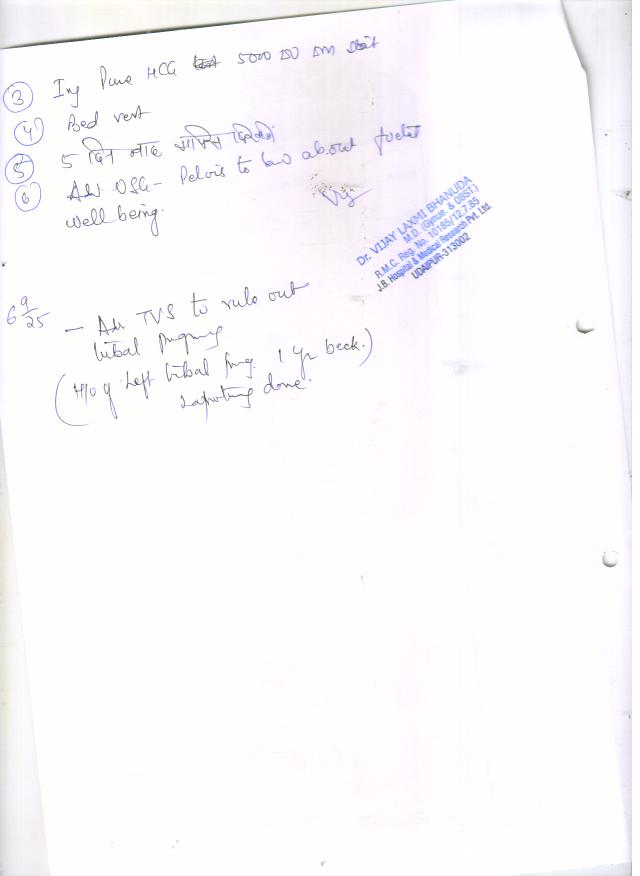 ③ Inj Pure HCG 5000 IM Stat
④ Bed rest
⑤ 5 दिन बाद वापिस दिखाये
⑥ Adv USG - Pelvis to know about foetal
well being.
Dr. VIJAY LAXMI BHANUDA
M.D. (Gynae. & OBST.)
R.M.C. Reg. No. 10185/12.7.85
J.B. Hospital & Medical Research Pvt. Ltd.
UDAIPUR-313002
6/9/25 - Adv TVS to rule out
tubal pregnancy
(H/o of Left tubal preg. 1 yr back.)
laparotomy done.